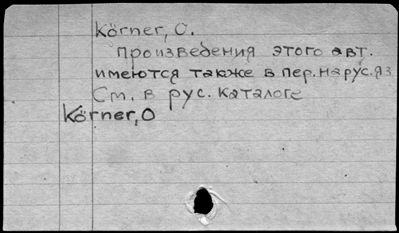 Körner, O.
произведения этого авт.
имеются также в пер. на рус. яз
См. в рус. каталоге
Körner, O